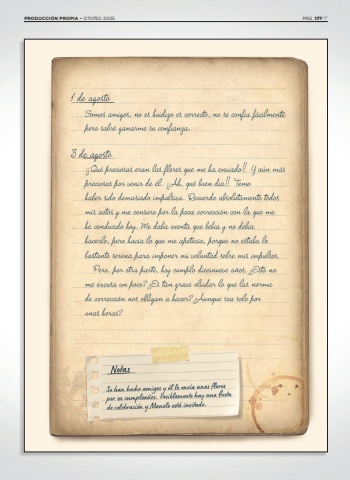 PRODUCCIÓN PROPIA • OTOÑO 2025
PÁG. 177 //
1 de agosto
Somos amigos, no es huidizo es correcto, no se confía fácilmente
pero sabré ganarme su confianza.
3 de agosto
¡¡Qué preciosas eran las flores que me ha enviado!! Y aún más
preciosas por venir de él. ¡¡Ah, qué buen día!! Temo
haber sido demasiado impulsiva. Recuerdo absolutamente todos
mis actos y me censuro por la poca corrección con la que me
he conducido hoy. Me daba cuenta que bebía y no debía
hacerlo, pero hacía lo que me apetecía, porque no estaba lo
bastante serena para imponer mi voluntad sobre mis impulsos.
Pero, por otra parte, hoy cumplo diecinueve años. ¿Esto no
me excusa un poco? ¿Es tan grave olvidar lo que las normas
de corrección nos obligan a hacer? Aunque sea solo por
unas horas?
Notas
Se han hecho amigos y él le envía unas flores
por su cumpleaños. Posiblemente hay una fiesta
de celebración y Manolo está invitado.